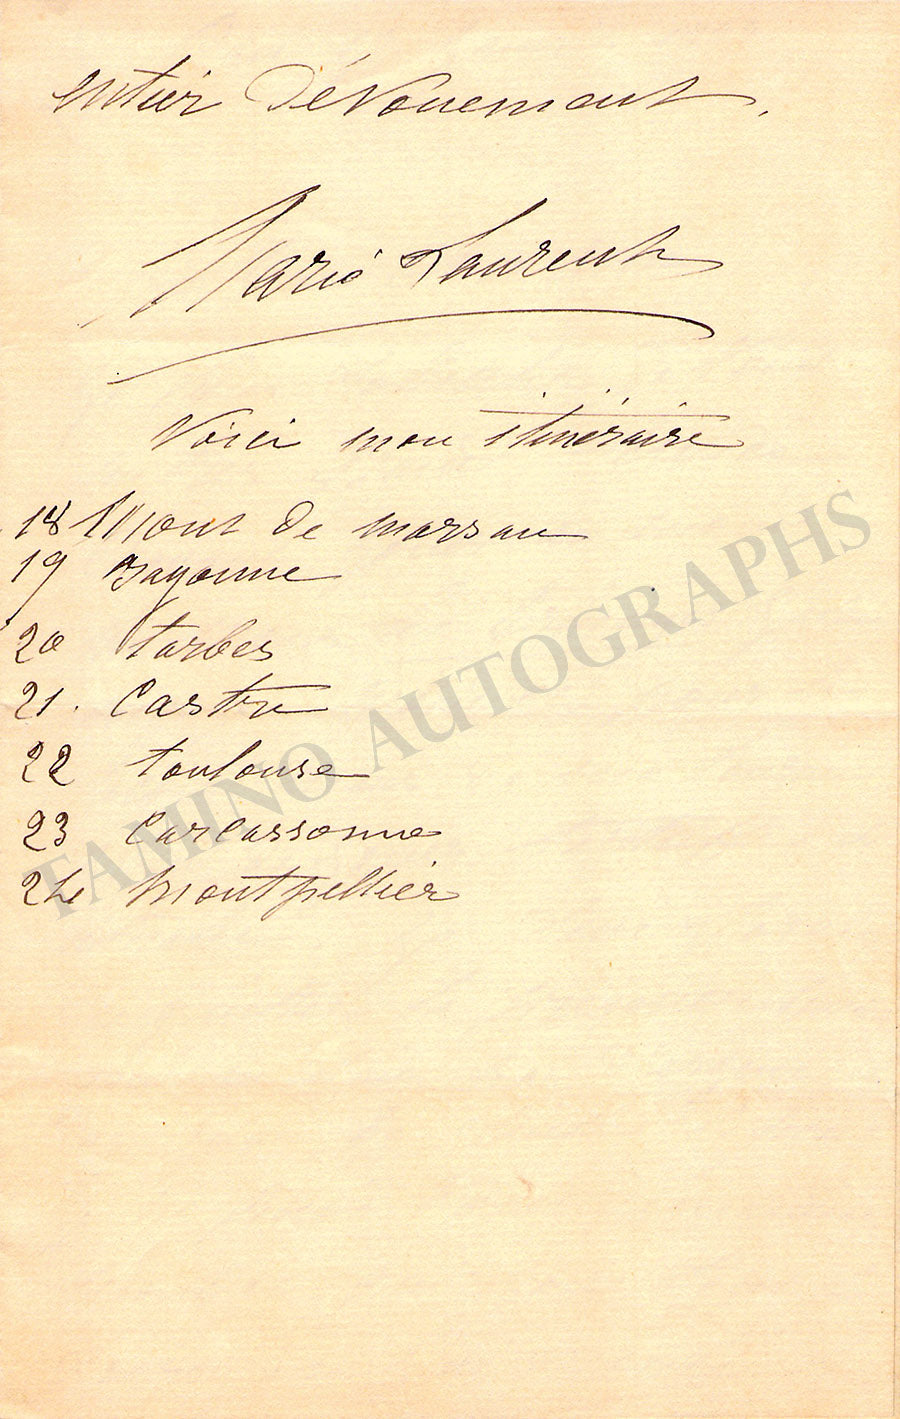 entier dévouement.
Marie Laurent
Voici mon itinéraire
18 Mont de marsan
19 Bayonne
20 tarbes
21. Castre
22 toulouse
23 Carcassonne
24 Montpellier
TAMINO AUTOGRAPHS